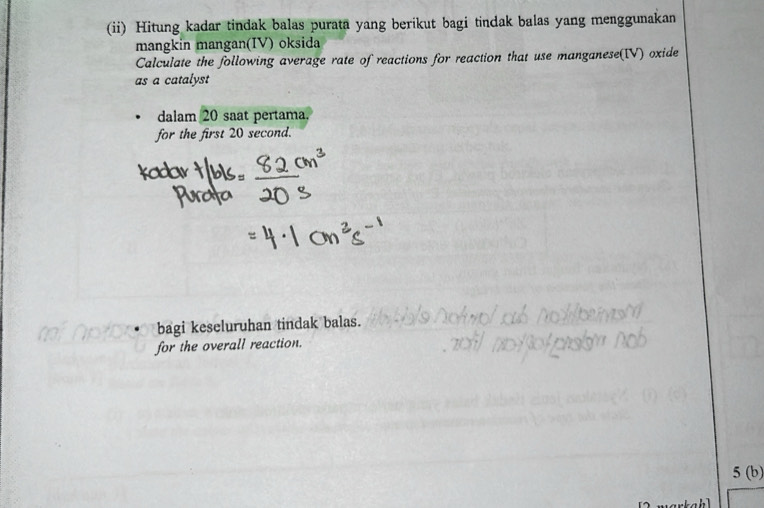 (ii) Hitung kadar tindak balas purata yang berikut bagi tindak balas yang menggunakan
mangkin mangan(IV) oksida
Calculate the following average rate of reactions for reaction that use manganese(IV) oxide
as a catalyst
• dalam 20 saat pertama.
for the first 20 second.
kadar t/bls = 82 cm³
Purata 20 s
= 4.1 cm³s⁻¹
• bagi keseluruhan tindak balas.
for the overall reaction.
5 (b)
[2 markah]